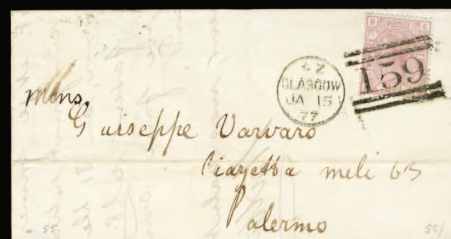 42
GLASGOW
JA 15
77
159
Mons.
Giuseppe Varvaro
Piazetta meli 63
Palermo